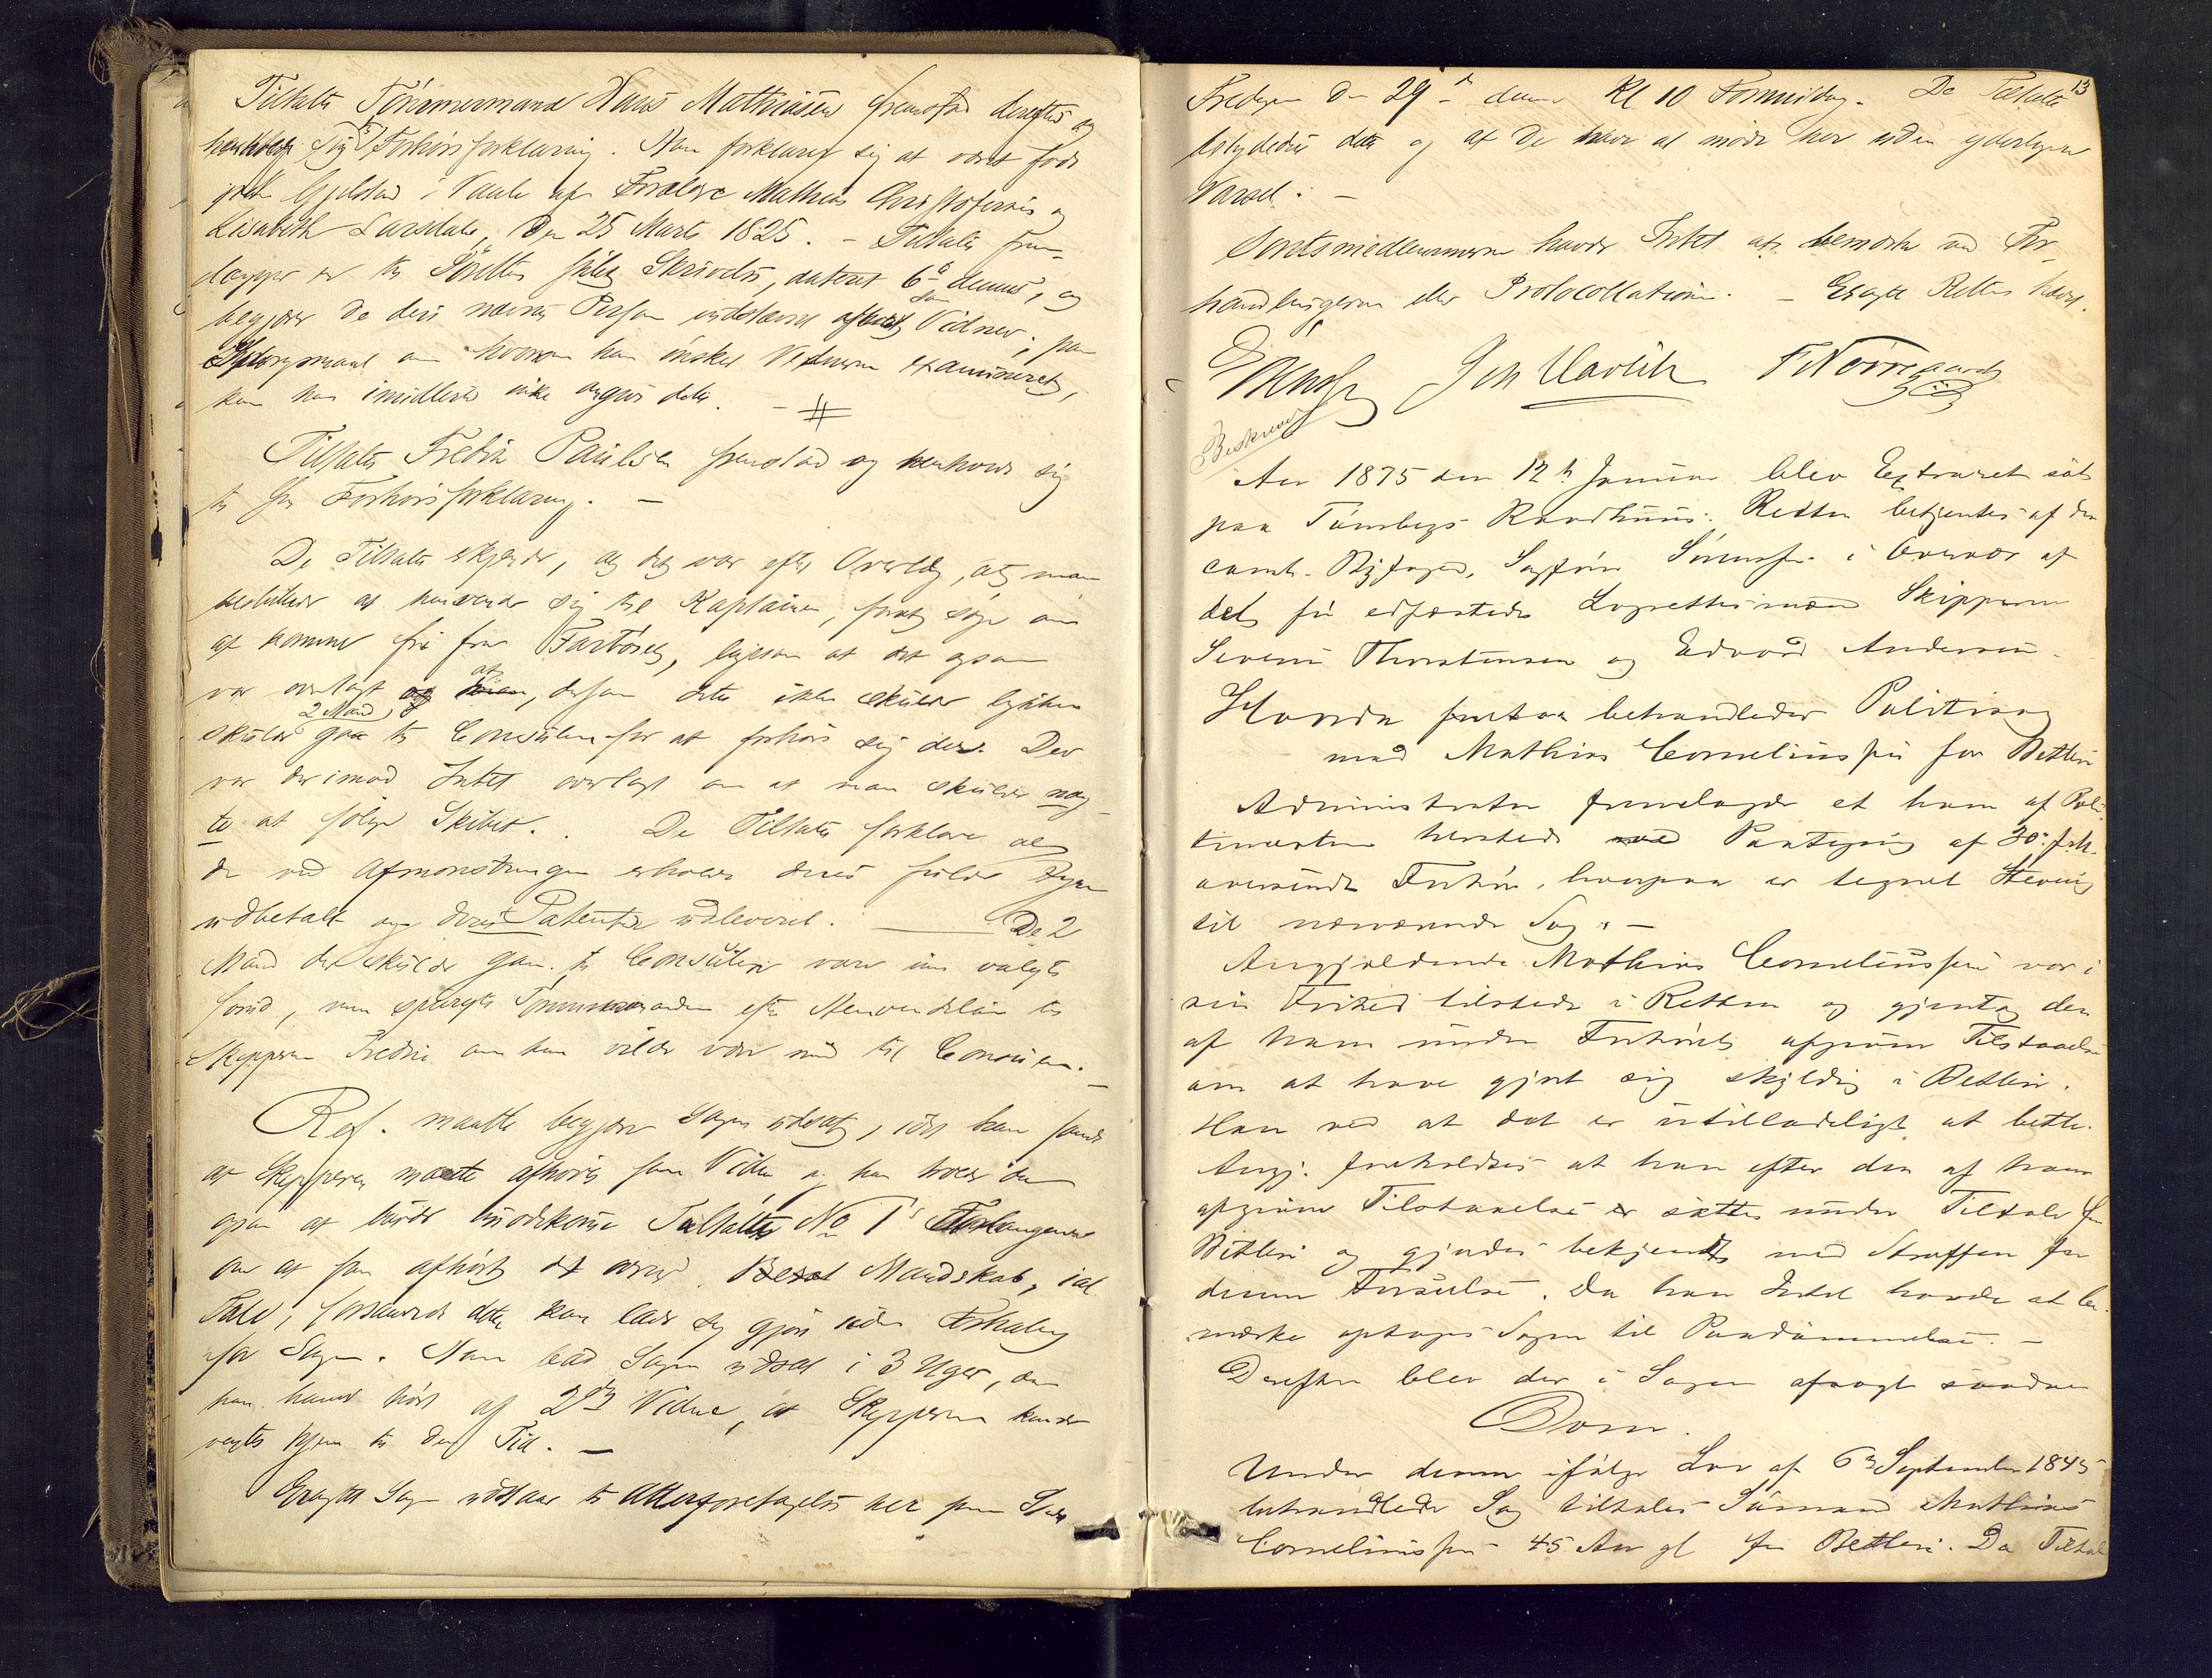 Tiltalte Tømmermand Hans Mathiasen fremstod derefter og
sig Forhørsforklaring. Han forklarer sig at være født
i Vaale af Forældre Mathias Christofersen og
Lisabeth Larsdatter, den 25 Marts 1825. – Tiltalte frem-
lægger en til Søretten stilet Skrivelse, dateret 6te dennes, og
begjærer de deri nævnte Personer indstævnet som Vidner; paa
Spørgsmaal om hvorom han ønsker Vidnerne examineret,
kan han imidlertid ikke opgive dette. –
Tiltalte Fredrik Paulsen fremstod og henholdt sig
til sin Forhørsforklaring. –
De Tiltalte erkjender, at det var efter Overlæg, at man
besluttede at henvende sig til Kaptainen, for at søge om
at komme fri fra Fartøiet, ligesom at det ogsaa
var overlagt at, dersom dette ikke skulde lykkes
skulde 2 Mand gaa til Consulen for at forhøre sig der. Der
var derimod Intet overlagt om at man skulde næg-
te at følge Skibet. De Tiltalte forklare at
de ved Afmønstringen erholdt deres fulde Hyre
udbetalt og deres Patenter udleveret. De 2
Mand der skulde gaa til Consulen vare ei valgte
forud, men spurgte Tømmermanden efter Henvendelsen til
Skipperen Fredrik om han vilde være med til Consulen. –
Ref. maatte begjære Sagen udsat, idet han fandt
at Skipperen maatte afhøres som Vidne og han troede den
ogsaa at burde imødekomme Tiltalte No 1's Forlangende
om at faa afhørt Mandskab, ial
Fald, forsaavidt dette kan lade sig gjøre uden Ophold
for Sagen. Han bad Sagen udsat i 3 Uger, da
han havde hørt af 2det Vidne, at Skipperen kunde
ventes hjem til den Tid. –
Eragtet Sagen udstaar til Atterforetagelse her paa Stedet
13
Fredagen den 29de dennes Kl 10 Formiddag. De Tiltalte
betydedes dette og at de have at møde her uden yderligere
Varsel. –
Søretsmedlemmerne havde Intet at bemærke ved For-
handlingerne eller Protocollationen. – Eragtet Retten hævet.
F Nørregaard
Beskrevet
Aar 1875 den 12te Januar blev Extraret sat
paa Tønsbergs Raadhuus. Retten betjentes af den
const. Byfoged, Sagfører Simonsen i Overvær af
det få edfæstede Lagrettesmænd Skipperne
Severin Thorstensen og Edvard Andersen.
Hvorda foretoges behandledes Politisag
mod Mathias Corneliussen for Betleri
Administrator fremlagde et ham af Poli-
timesteren herstede med Paategning af 30. f. M.
oversendt Forhør, hvorpaa er tegnet Stevning
til nærværende Sag. –
Angjældende Mathias Corneliussen var i
sin Frihed tilstede i Retten og gjentog den
af ham under Forhøret afgivne Tilstaaelse
om at have gjort sig skyldig i Betleri.
Han ved at det er utilladeligt at betle.
Angj. foreholdtes at han efter den af ham
afgivne Tilstaaelse er sættes under Tiltale for
Betleri og gjordes bekjendt med Straffen for
denne Forseelse. Da han Intet havde at be-
mærke optoges Sagen til Paadømmelse. –
Derefter blev der i Sagen afsagt saadan
Dom.
Under denne ifølge Lov af 6te September 1845
behandlede Sag tiltales Sømand Mathias
Corneliussen 45 Aar gl for Betleri. Da Tiltal